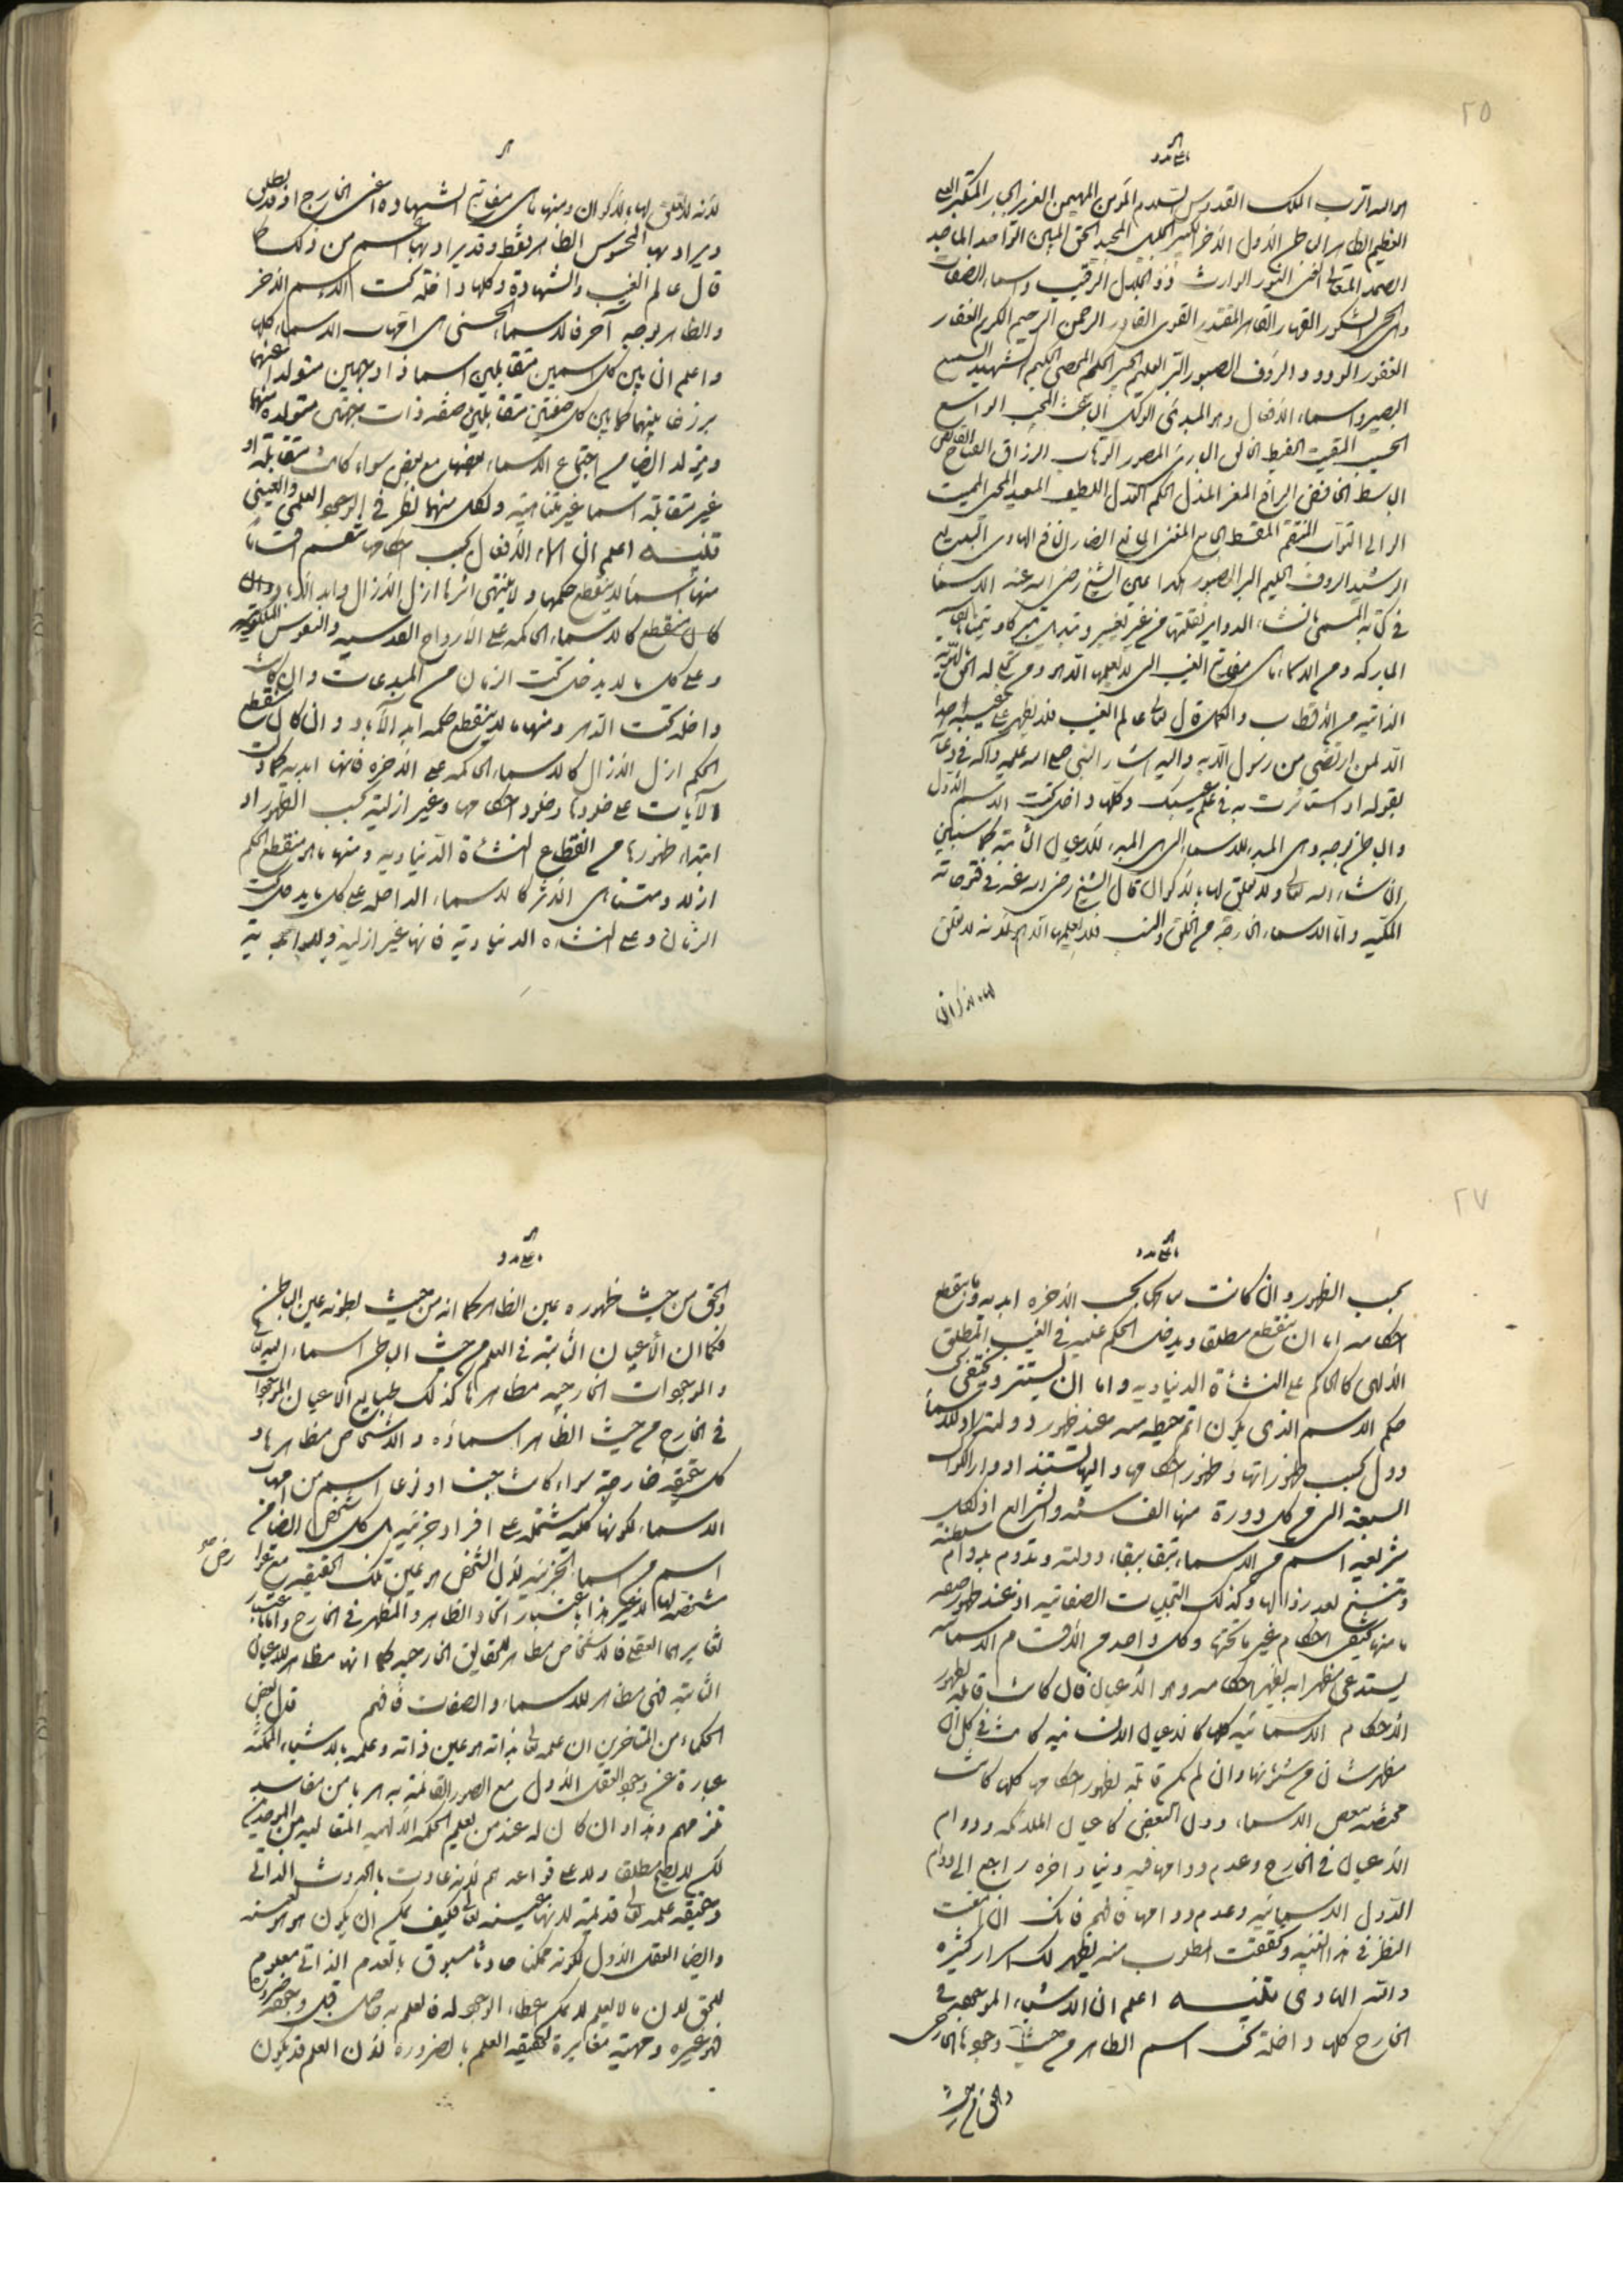 ٢٥
هو الله الرب الملك القدوس السلام المؤمن المهيمن العزيز الجبار المتكبر العلى
العظيم الظاهر الباطن الأول الآخر الكبير الجليل المجيد الحق المبين الواحد الماجد
الصمد المتعالى الغنى النور الوارث ذو الجلال الرقيب واسماء الصفات
وهى الحى الشكور القهار القاهر المقتدر القوى القادر الرحمن الرحيم الكريم الغفار
الغفور الودود الرؤف الصبور البر العليم الخبير الحكيم المحصى الحكيم الشهيد السميع
البصير واسماء الافعال وهو المبدئ الوكيل الباعث المجيب الواسع
الحسيب المقيت الحفيظ الخالق البارئ المصور الوهاب الرزاق الفتاح القابض
الباسط الخافض الرافع المعز المذل الحكم العدل اللطيف المعيد المحيى المميت
الوالى التواب المنتقم المقسط الجامع المغنى المانع الضار النافع الهادى البديع
الرشيد الرؤف الحليم البر الصبور هكذا عين الشيخ رضى الله عنه الاسماء
فى كتابه المسمى بانشاء الدواير نقلتها من غير تغيير وتبديل تبركا وتيمنا بانفاسه
المباركة ومن الاسماء ما هى مفاتيح الغيب التى لا يعلمها الا هو ومن تجلى له الحق بالهوية
الذاتية من الاقطاب والكمل قال تعالى عالم الغيب فلا يظهر على غيبه احدا
الا لمن ارتضى من رسول الآية واليه اشار النبى صلى الله عليه وآله فى دعائه
بقوله او استأثرت به فى علم غيبك وكلها داخل تحت الاسم الأول
والباطن بوجه وهى المبدء للاسماء التى هى المبدء للاعيان الثابتة كما سنبين
ان شاء الله تعالى ولا تعلق لها بالاكوان قال الشيخ رضى الله عنه فى فتوحاته
المكية واما الاسماء الخارجة عن الخلق والنسب فلا يعلمها الا هو لانه لا تعلق
لها بالاكوان
لانه لا تعلق لها بالاكوان ومنها ما هى مفاتيح الشهادة اعنى الخارج اذ قد يطلق
ويراد بها المحسوس الظاهر فقط وقد يراد بها اعم من ذلك كما
قال عالم الغيب والشهادة وكلها داخلة تحت الاسم الآخر
والظاهر بوجه آخر فالاسماء الحسنى هى امهات الاسماء كلها
واعلم ان بين كل اسمين متقابلين اسما ذا وجهين متولدا عنهما
برزخا بينهما كما بين كل صفتين متقابلين صفة ذات جهتين متولدة منهما
ويتولد ايضا من اجتماع الاسماء بعضها مع بعض سواء كانت متقابلة او
غير متقابلة اسما غير متناهية ولكل منها مظهر فى الوجود العلمى والعينى
تنبيه اعلم ان اسماء الافعال بحسب احكامها تنقسم اقساما
منها اسماء لا ينقطع حكمها ولا ينتهى اثرها ازل الآزال وابد الآباد
كالاسماء الحاكمة على الأرواح القدسيه والنفوس الملكوتيه
وعلى كل ما لا يدخل تحت الزمان من المبدعات وان كانت
داخلة تحت الدهر ومنها ما لا ينقطع حكمه ابد الآباد وان كان منقطع
الحكم ازل الآزال كالاسماء الحاكمة على الآخرة فانها ابدية كما دلت
الآيات على خلودها وخلود احكامها وغير ازلية بحسب الظهور اذ
ابتداء ظهورها من انقطاع النشأة الدنياوية ومنها ما هو منقطع الحكم
ازلا ومتناهى الاثر كالاسماء الداخلة على كل ما يدخل تحت
الزمان وعلى النشأة الدنياوية فانها غير ازلية ولا ابدية
٢٧
بحسب الظهور وان كانت نتائجها بحسب الآخرة ابدية وما ينقطع
احكامه اما ان ينقطع مطلقا ويدخل الحاكم عليه فى الغيب المطلق
الالهى كالحاكم على النشأة الدنياوية واما ان يستتر ويختفى
حكم الاسم الذى يكون اتم حيطة منه عند ظهور دولته اذ للاسماء
دول بحسب ظهوراتها وظهور احكامها واليها تستند ادوار الكواكب
السبعة التى كل دورة منها الف سنة والشرايع اذ لكل
شريعة اسم من الاسماء تبقى ببقاء دولته وتدوم بدوام سلطنته
وتنسخ بعد زوالها وكذلك التجليات الصفاتية اذ عند ظهور صفة
ما منها تختفى احكام غيرها تحتها وكل واحد من الاقسام الاسمائية
يستدعى مظهرا به يظهر احكامه وهو الاعيان فان كانت قابلة لظهور
الأحكام الاسمائية كلها كالاعيان الانسانية كانت فى كل آن
مظهر شان من شئونها وان لم تكن قابلة لظهور احكامها كلها كانت
مختصة ببعض الاسماء دون البعض كاعيان الملائكة ودوام
الاعيان فى الخارج وعدم دوامها فيه دنيا وآخرة راجع الى دوام
الدول الاسمائية وعدم دوامها فافهم فانك ان امعنت
النظر فى هذا التنبيه وتحققت المطلوب منه يظهر لك اسرار كثيرة
والله الهادى تنبيه اعلم ان الاشياء الموجودة فى
الخارج كلها داخلة تحت اسم الظاهر من حيث وجودها الخارجى
والحق من حيث
والحق من حيث ظهوره عين الظاهر كما انه من حيث بطونه عين الباطن
فكما ان الأعيان الثابتة فى العلم من حيث الباطن اسماؤه تعالى
والموجودات الخارجية مظاهرها كذلك طبايع الاعيان الموجودة
فى الخارج من حيث الظاهر اسماؤه والاشخاص مظاهرها و
كل حقيقة خارجية سواء كانت جنسا او نوعا اسم من امهات
الاسماء لكونها كلية مشتملة على افراد جزئية بل كل شخص ايضا
اسم من الاسماء الجزئية لان الشخص هو عين تلك الحقيقة مع عوارض
مشخصة لها لا غير هذا باعتبار اتحاد الظاهر والمظهر فى الخارج واما باعتبار
تغايرهما العقلى فالاشخاص مظاهر للحقايق الخارجية كما انها مظاهر للاعيان
الثابتة فهى مظاهر للاسماء والصفات فافهم قال بعض
الحكماء من المتاخرين ان علمه تعالى بذاته هو عين ذاته وعلمه بالاشياء الممكنة
عبارة عن وجود العقل الأول مع الصور القائمة به هربا من مفاسد
تلزمهم وهذا وان كان له عند من يعلم الحكمة الالهية المتعالية من الموحدين
لكن لا يصح مطلقا ولا على قواعدهم لانه حادث بالحدوث الذاتى
وحقيقة علمه تعالى قديمة لانها عينه فكيف يمكن ان يكون هو هو بعينه
وايضا العقل الأول لكونه ممكنا حادثا مسبوق بالعدم الذاتى معلوم
للحق لان ما لا يعلم لا يمكن اعطاء الوجود له فالعلم به حاصل قبل وجوده ضرورة
فهو غيره وماهيته مغايرة لحقيقة العلم بالضرورة لان العلم قد يكون